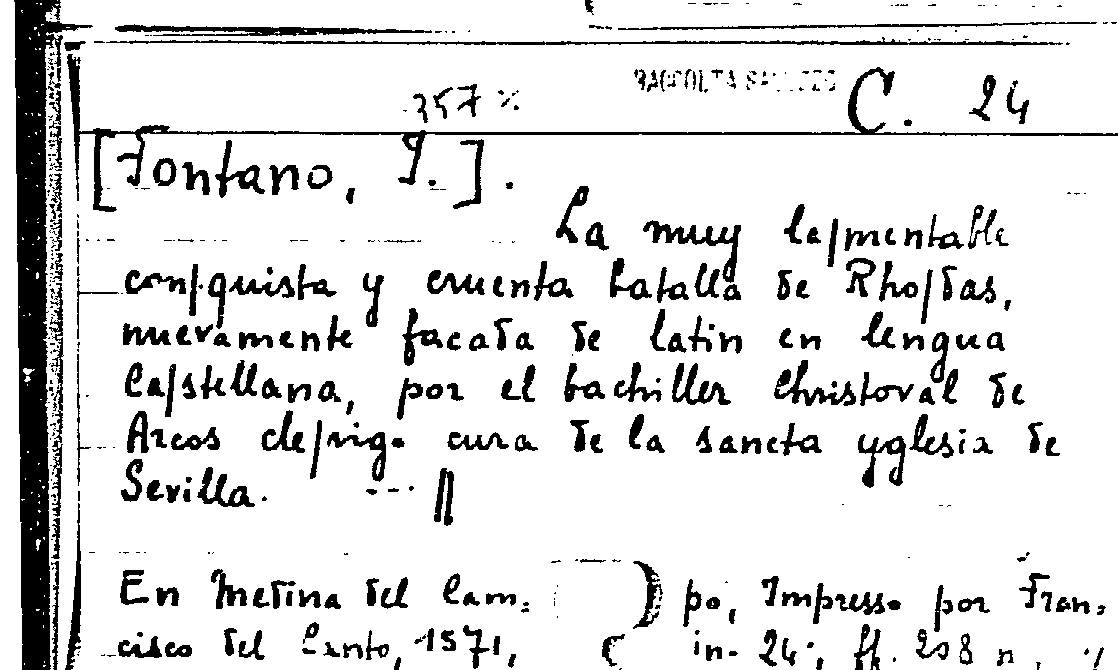 357 % RACCOLTA C. 24
[Fontano, J.].
La muy la/mentable
con/quista y cruenta batalla de Rho/das,
nuevamente sacada de latin en lengua
Ca/stellana, por el bachiller Christoval de
Arcos cle/rigo cura de la sancta yglesia de
Sevilla. --- ||
En Medina del Cam= po, Impresso por Fran=
cisco del Canto, 1571, in- 24°, ff. 208 n.